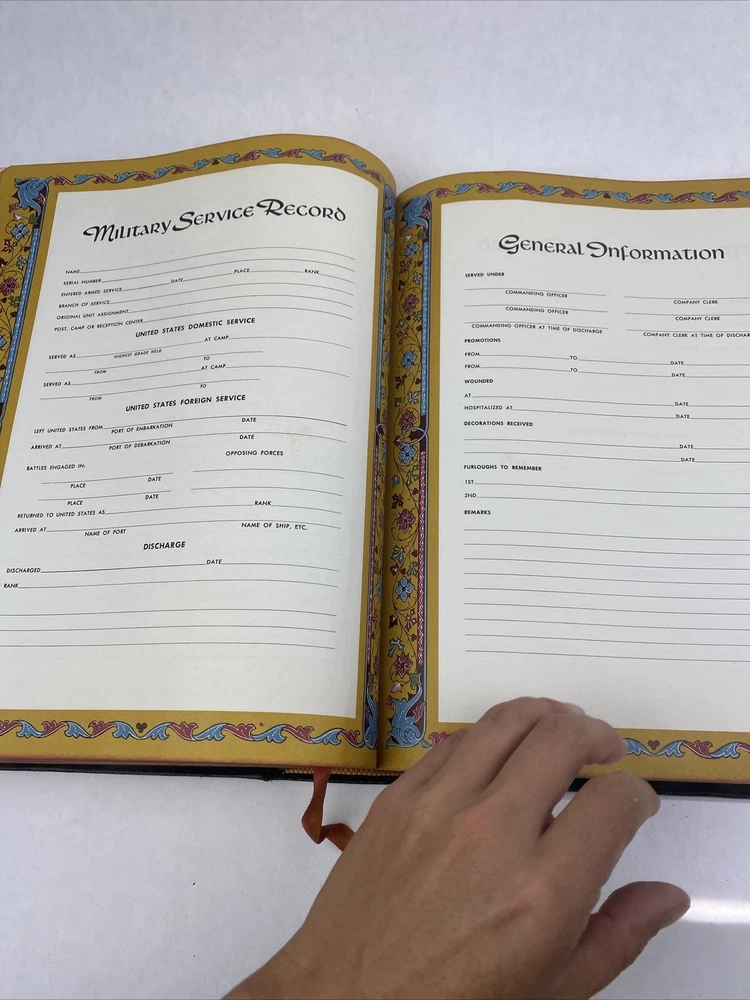 Military Service Record
NAME
SERIAL NUMBER
ENTERED ARMED SERVICE DATE PLACE RANK
BRANCH OF SERVICE
ORIGINAL UNIT ASSIGNMENT
POST, CAMP OR RECEPTION CENTER
UNITED STATES DOMESTIC SERVICE
SERVED AS AT CAMP
HIGHEST GRADE HELD
FROM TO
SERVED AS AT CAMP
FROM TO
UNITED STATES FOREIGN SERVICE
LEFT UNITED STATES FROM
PORT OF EMBARKATION DATE
ARRIVED AT
PORT OF DEBARKATION DATE
BATTLES ENGAGED IN: OPPOSING FORCES
PLACE DATE
PLACE DATE
RETURNED TO UNITED STATES AS RANK
ARRIVED AT
NAME OF PORT NAME OF SHIP, ETC.
DISCHARGE
DISCHARGED DATE
RANK
General Information
SERVED UNDER
COMMANDING OFFICER COMPANY CLERK
COMMANDING OFFICER COMPANY CLERK
COMMANDING OFFICER AT TIME OF DISCHARGE COMPANY CLERK AT TIME OF DISCHAR
PROMOTIONS
FROM TO DATE
FROM TO DATE
WOUNDED
AT DATE
HOSPITALIZED AT DATE
DECORATIONS RECEIVED
DATE
DATE
FURLOUGHS TO REMEMBER
1ST
2ND
REMARKS